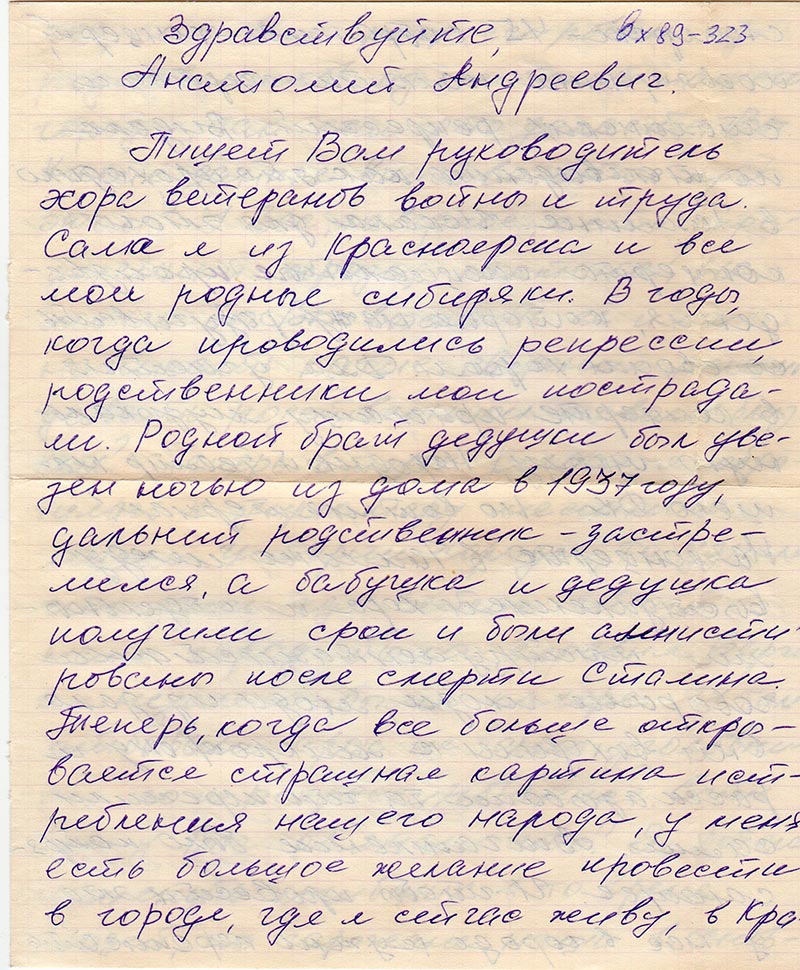 Здравствуйте, Вх 89-323
Анатолий Андреевич.
Пишет Вам руководитель
хора ветеранов войны и труда.
Сама я из Красноярска и все
мои родные сибиряки. В годы,
когда проводились репрессии,
родственники мои пострада-
ли. Родной брат дедушки был уве-
зен ночью из дома в 1937 году,
дальний родственник - застре-
лился, а бабушка и дедушка
получили срок и были амнисти
рованы после смерти Сталина.
Теперь, когда все больше откры-
вается страшная картина ист-
ребления нашего народа, у меня
есть большое желание провести
в городе, где я сейчас живу, в Кра-